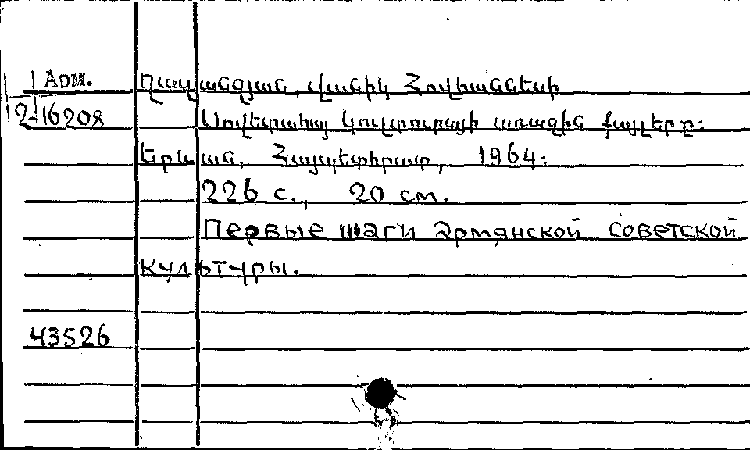 Арм. Ղազանջյան, Վանիկ Հովհաննեսի
2-16208 Սովետահայ կուլտուրայի առաջին քայլերը:
Երևան, Հայպետհրատ, 1964:
226 с., 20 см.
Первые шаги армянской советской
культуры.
43526